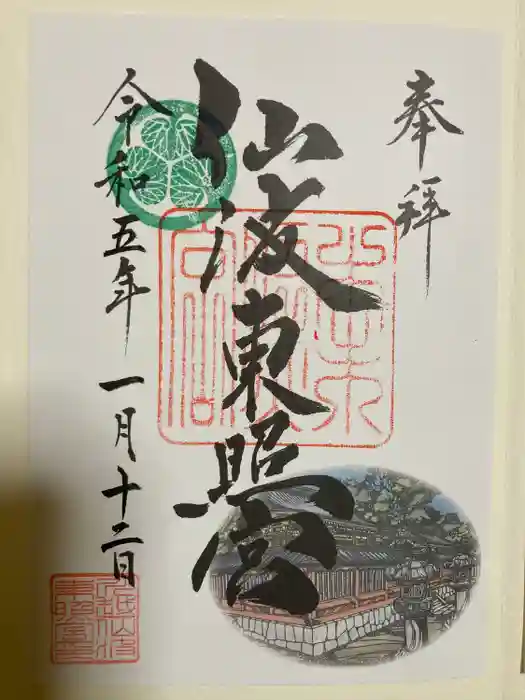 奉拝
仙波東照宮
令和五年一月十二日